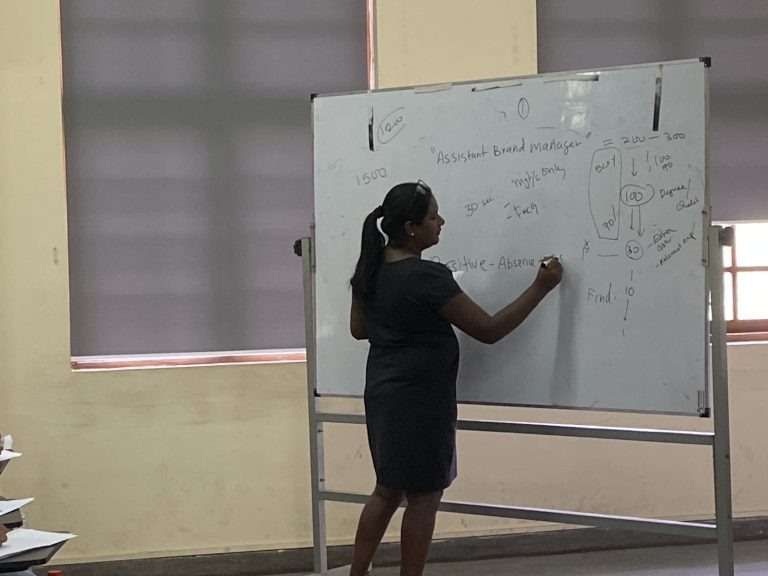 1
1200
"Assistant Brand Manager" = 200 - 300
1500
100
90
OUT
Mgt/c only
30 sec
100
Degree/
70
30
Positive - Absence
- Extra
- Relevant exp
Find. 10
1